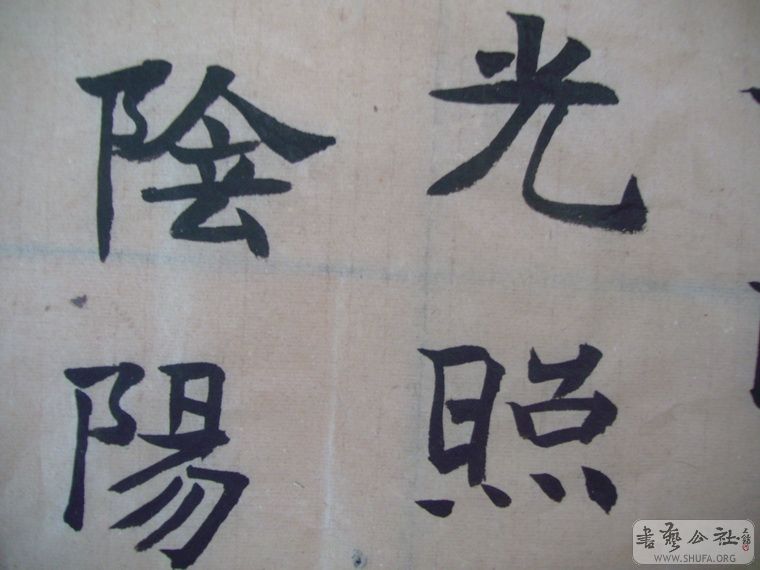 光照
陰陽
書藝公社
WWW.SHUFA.ORG